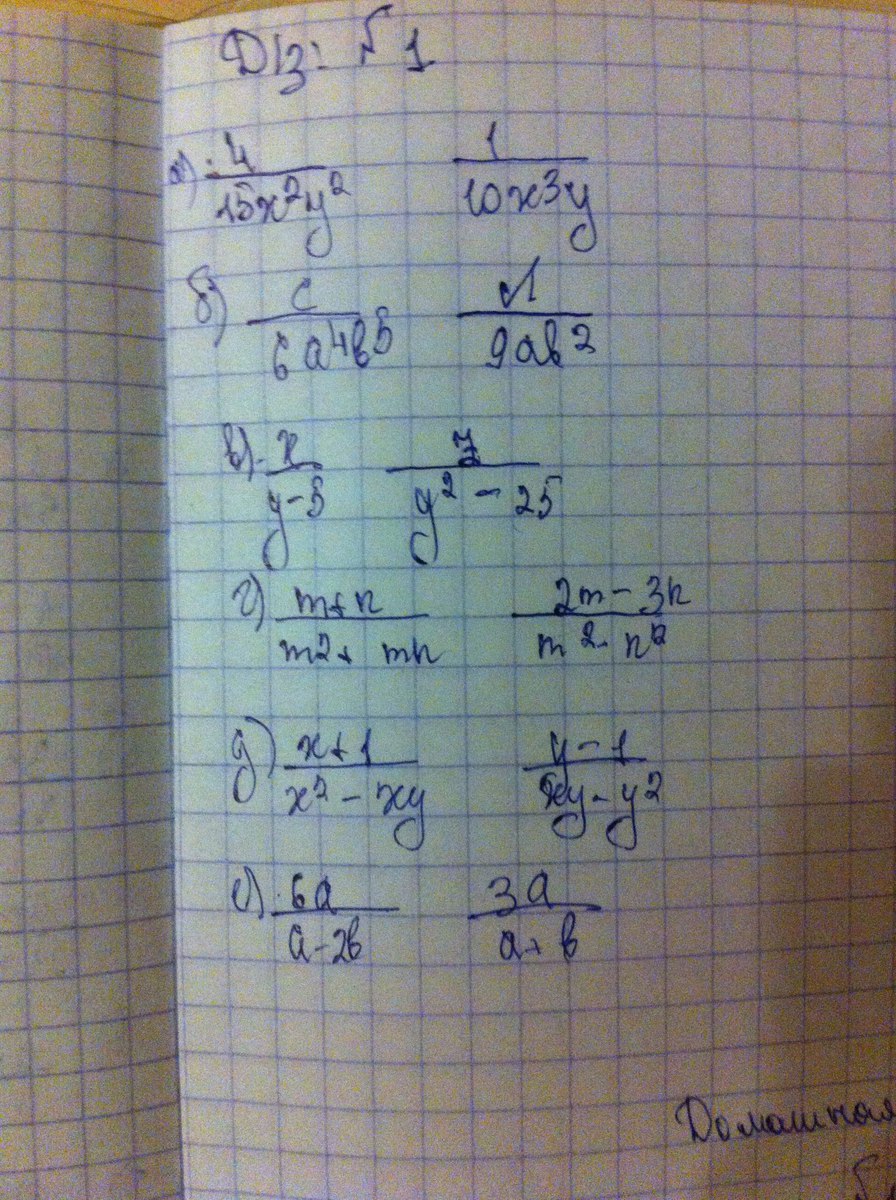 Д/з: №1
а) 4/(15x²y²) 1/(10x³y)
б) c/(6a⁴b⁵) 1/(9ab²)
в) x/(y-5) 7/(y²-25)
г) (m+n)/(m²+mn) (2m-3n)/(m²-n²)
д) (x+1)/(x²-xy) (y-1)/(xy-y²)
е) 6a/(a-2b) 3a/(a+b)
Домашная